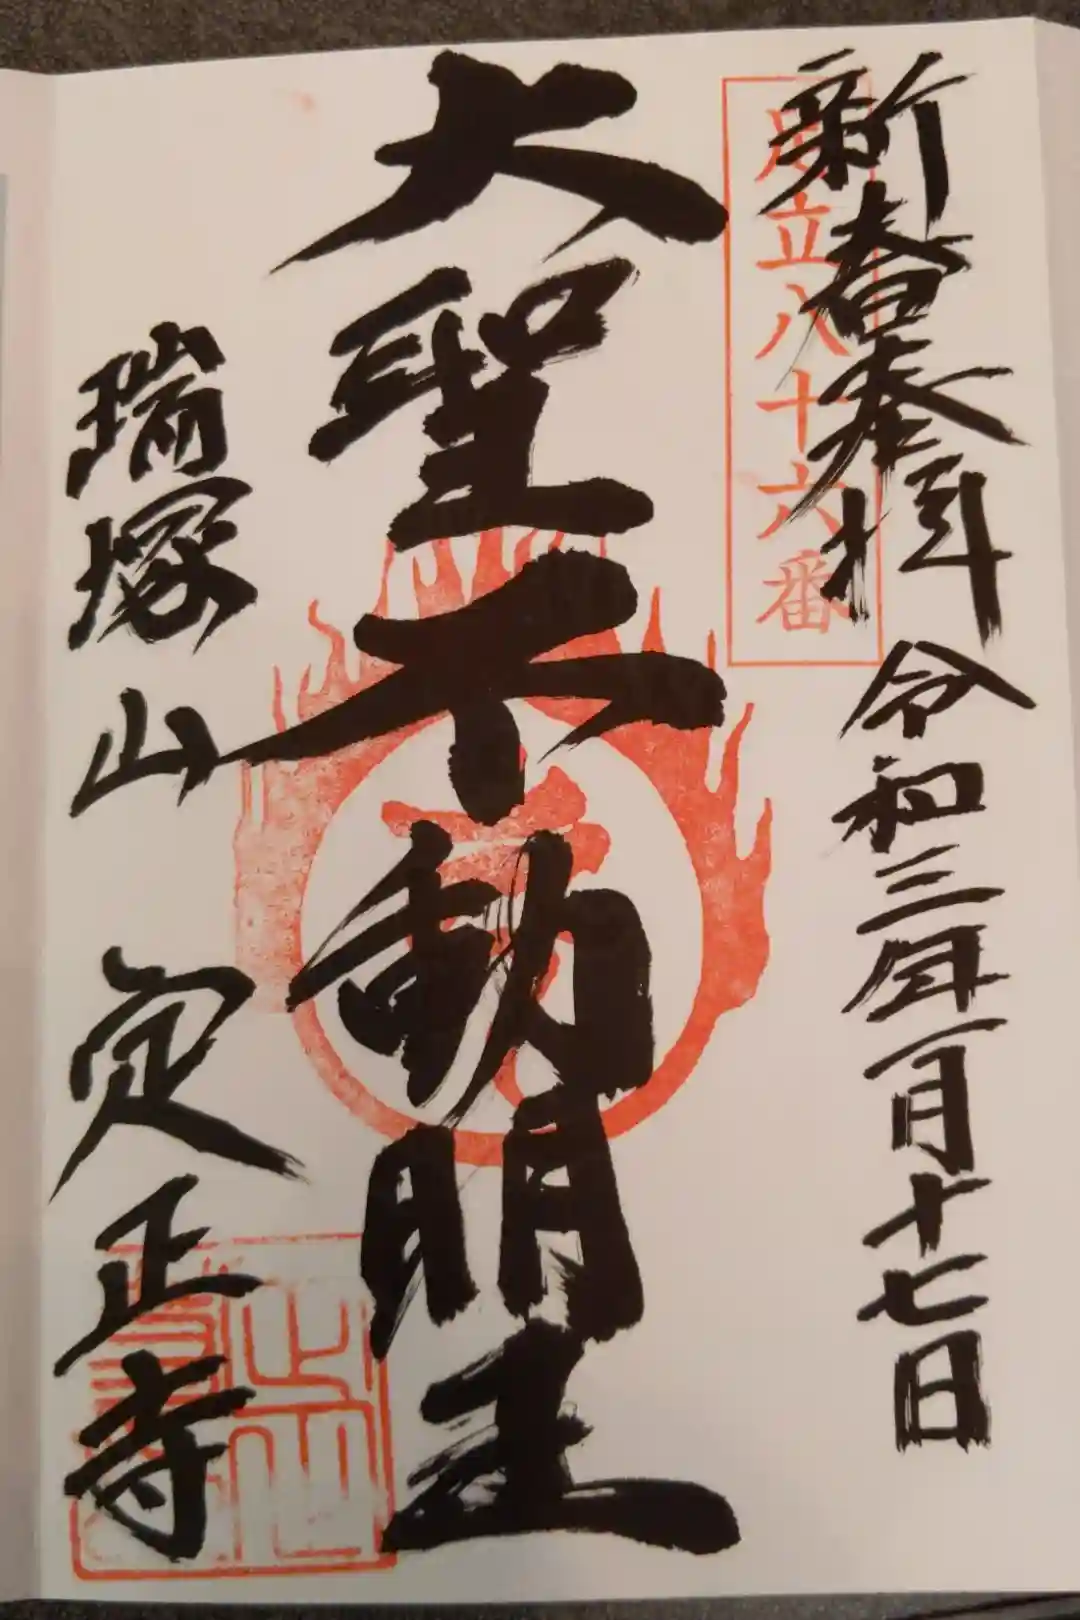 新春奉拝 令和三年一月十七日
足立八十六番
大聖不動明王
瑞塚山 定正寺